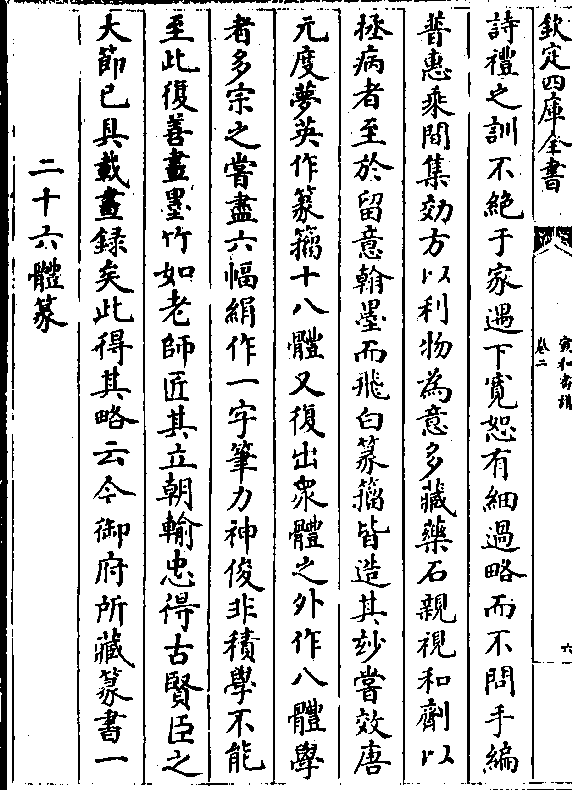 欽定四庫全書
宣和書譜
卷二
六
詩禮之訓不絶于家遇下寛恕有細過略而不問手編
普惠乘閒集効方以利物為意多藏藥石親視和劑以
拯病者至於留意翰墨而飛白篆籀皆造其玅嘗效唐
元度夢英作篆籀十八體又復出衆體之外作八體學
者多宗之嘗盡六幅絹作一字筆力神俊非積學不能
至此復善畫墨竹如老師匠其立朝輸忠得古賢臣之
大節已具載畫録矣此得其略云今御府所藏篆書一
二十六體篆